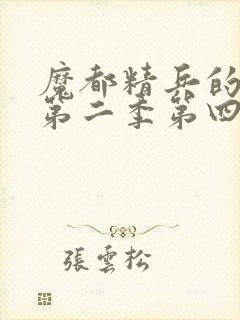 魔都精兵的
第二季第四
張雲松